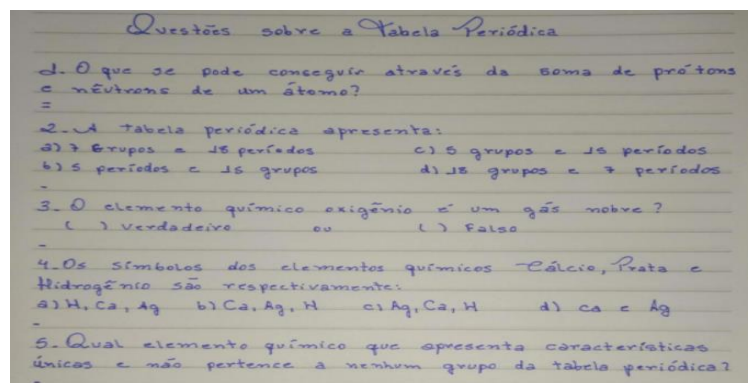 Questões sobre a Tabela Periódica
1. O que se pode conseguir através da soma de prótons
e nêutrons de um átomo?
=
2. A tabela periódica apresenta:
a) 7 Grupos e 18 períodos c) 5 grupos e 15 períodos
b) 5 períodos e 15 grupos d) 18 grupos e 7 períodos
-
3. O elemento químico oxigênio é um gás nobre?
( ) Verdadeiro ou ( ) Falso
-
4. Os símbolos dos elementos químicos Cálcio, Prata e
Hidrogênio são respectivamente:
a) H, Ca, Ag b) Ca, Ag, H c) Ag, Ca, H d) Ca e Ag
-
5. Qual elemento químico que apresenta características
únicas e não pertence a nenhum grupo da tabela periódica?
-